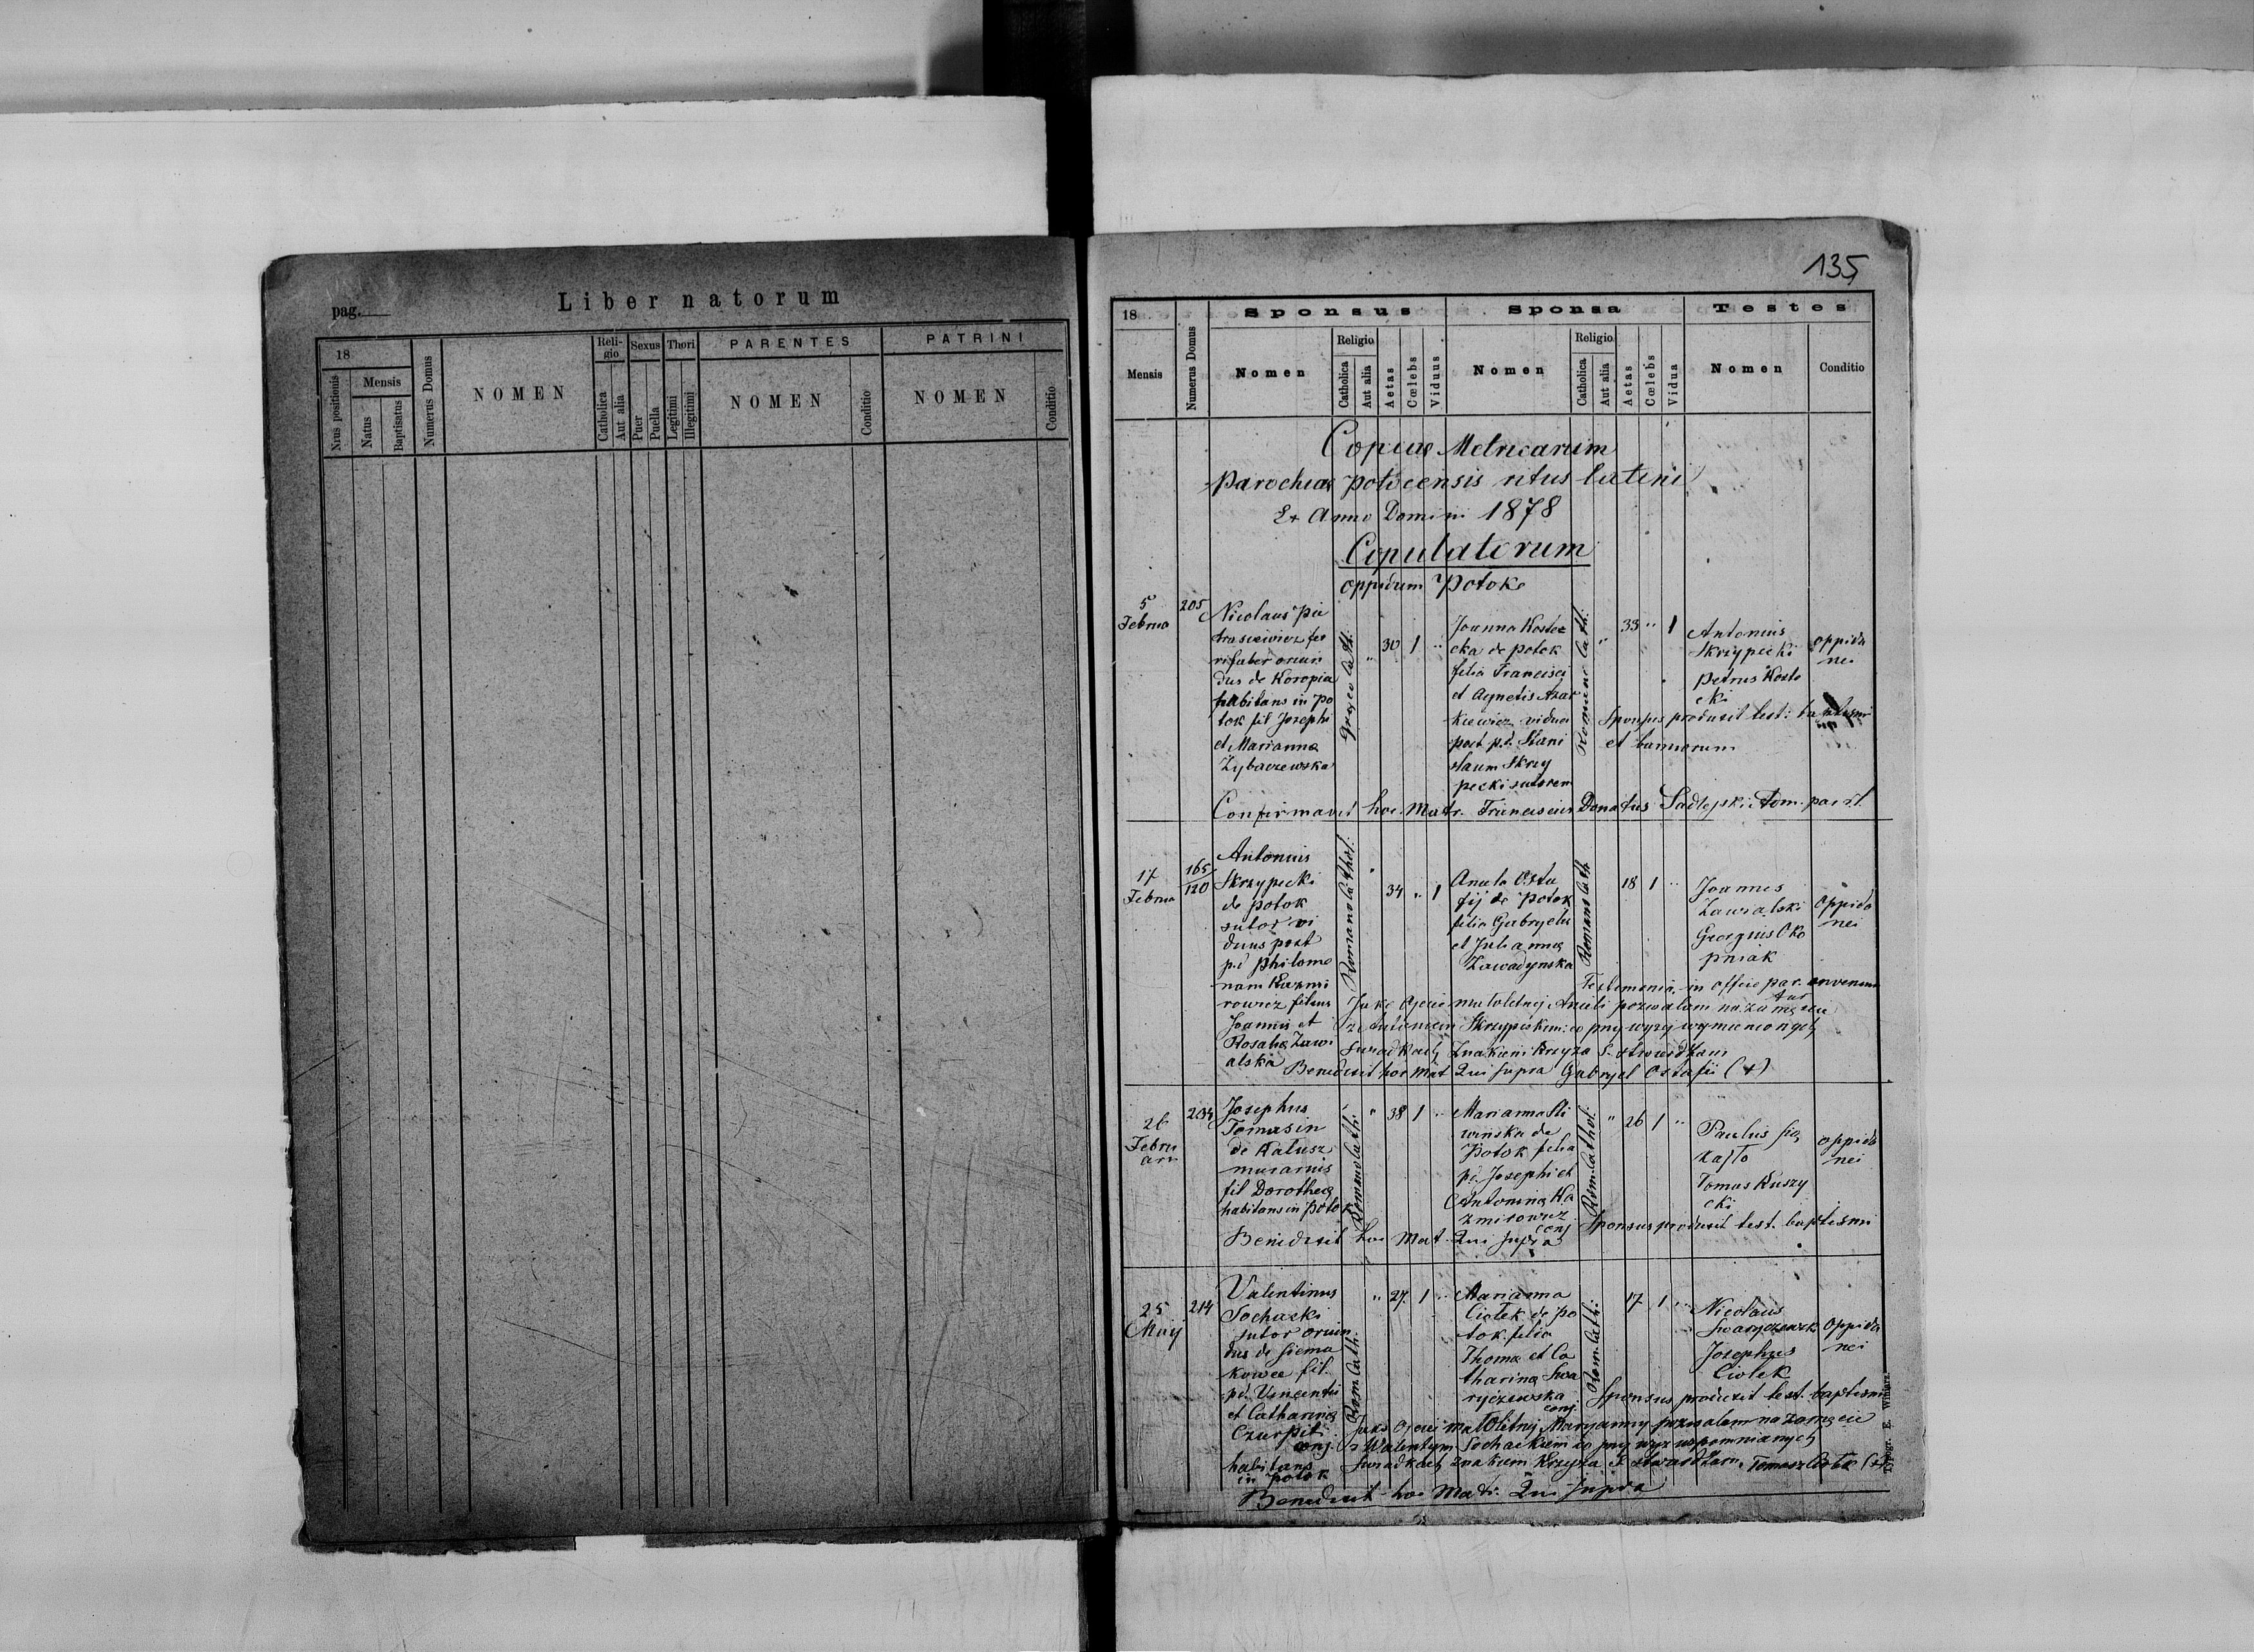 pag.
Liber natorum
18
Nrus positionis
Mensis
Natus
Baptisatus
Numerus Domus
NOMEN
Reli-
gio
Catholica
Aut alia
Sexus
Puer
Puella
Thori
Legitimi
Illegitimi
PARENTES
NOMEN
Conditio
PATRINI
NOMEN
Conditio
135
18
Mensis
Numerus Domus
Sponsus
Nomen
Religio
Catholica
Aut alia
Aetas
Cœlebs
Viduus
Sponsa
Nomen
Religio
Catholica
Aut alia
Aetas
Cœlebs
Vidua
Testes
Nomen
Conditio
Copiae Metricarum
Parochiae potocensis ritus latini
Anno Domini 1878
Copulatorum
oppidum Potok
5
Februa
205
Nicolaus Pie
trasiewicz fer
rifaber oriun
dus de Koropia
habitans in Po
tok fil Josephi
et Marianna
Zybaczewska
Graeco cath:
"
30
1
"
Joanna Koste
cka de potok
filia Francisci
et Agnetis
kiewicz vidua
post p.d. Stani
slaum Skrzy
pecki sutorem
Romano cath:
"
33
"
1
Antonius
Skrzypecki
Petrus Koste
cki
oppida
nei
Sponsus produxit test: baptismi
et bannorum
Confirmavit hoc. Matr. Franciscus Donatus Adm. par rl.
17
Februa
165/
120
Antonius
Skrzypecki
de potok
sutor vi
duus post
p.d Philome
nam Kazmi
rowicz filius
Joannis et
Rosalia Zawi
alska
Romano cathol:
"
34
"
1
Aniela Osta
fij de Potok
filia Gabryelis
et Julianna
Zawadynska
Romano cath
18
1
"
Joannes
Zawialski
Georgius Oko
pniak
Oppida
nei
Testimonia in offic par.
Jako Ojciec małoletniej Anieli pozwalam na zamęzcie
z Antonim Skrzypeckim: co przy wyzej wymienionych
Swiadkach Znakiem Krzyza S. stwierdzam
Benedixit hoc Mat Qui supra Gabryel Ostafii (+)
26
Febru
arii
204
Josephus
Tomasin
de Kalusz
murarius
fil Dorothea
habitans in Potok
Romano cath:
"
38
1
"
Marianna Sli
winska de
Potok filia
pd. Josephi et
Antonina Ka
zmirowicz
conj
Rom. cathol:
"
26
1
"
Paulus
Tomas Kuszy
cki
oppida
nei
Sponsus produxit test. baptismi
Benedixit hoc Mat. Qui supra
25
Maij
214
Valentinus
Sochacki
sutor oriun
dus de Siema
kowce fil.
pd. Vincentii
et Catharina
Czurpit
conj.
habitans
in Potok
Rom. Cath:
"
27.
1
"
Marianna
Ciołek de Po
tok. filia
Thoma et Ca
tharina Swa
ryczewska
conj
Rom. Cath:
17
1
"
Nicolaus
Swaryczewsk
Josephus
Ciołek
Oppida
nei
Sponsus produxit test. baptismi
Jako Ojciec małoletniej Maryanny pozwalam na zamęzcie
z Walentym Sochackiem co przy wyz wspomnianych
Swiadkach znakiem Krzyza S. stwierdzam. Tomasz Ciołek (+)
Benedixit hoc Matr. Qui supra
Typogr. E. Winiarz.